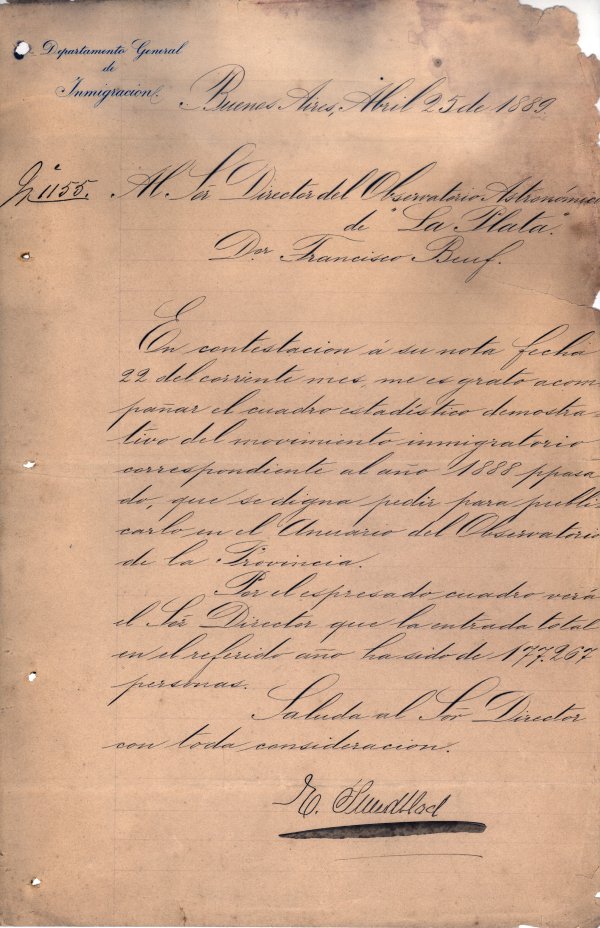 Departamento General
de
Inmigración.
Buenos Aires, Abril 25 de 1889.
Nº 1155.
Al Sör Director del Observatorio Astronómico
de "La Plata."
Dor Francisco Beuf.
En contestacion á su nota fecha
22 del corriente mes, me es grato acom
pañar el cuadro estadístico demostra-
tivo del movimiento inmigratorio
correspondiente al año 1888 ppasa
do, que se digna pedir para publi-
carlo en el Anuario del Observatorio
de la Provincia.
Por el espresado cuadro verá
el Sör Director que la entrada total
en el referido año ha sido de 177.267
personas.
Saluda al Sör Director
con toda consideracion.